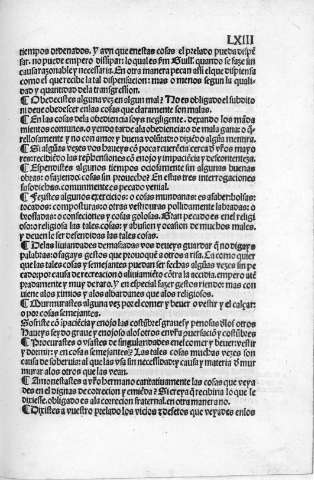 LXIII
tiempos ordenados. Y avn que enestas cosas el prelado pueda dispẽ
sar. no puede empero dissipar: lo qual es sin Bull. quando se faze sin
causa razonable y necessaria. En otra manera pecan assi el que dispensa
como el que recibe la tal dispensacion: mas o menos segun la qua
lidad y quantidad dela transgression.
¶ Obedecistes alguna vez en algun mal? No es obligado el subdito
ni deue obedescer enlas cosas que claramente son malas.
¶ En las cosas dela obediencia soys negligente. dexando los mãda
mientos comunes. o yendo tarde ala obediencia o de mala gana: o q̃
rellosamente y no con amor y buena volũtad: o dixistes algũa mentira.
¶ Si algũas vezes vos haueys cõ poca reuerẽcia cerca dl' vr̃os mayo
res: recibiẽdo las rep̃hensiones cõ enojo y impaciẽcia y descontenteza.
¶ Espendistes algunos tiempos ociosamente sin algunas buenas
obras: o fazienda cosas sin prouecho? En estas tres interrogaciones
susodichas. comunmente es pecado venial.
¶ Fezistes algunos exercicios: o cosas mundonas: es a saber bolsas:
tocados: composturas: o otras vestiduras pollidamente labradas: o
brosladas: o confeciones y cosas golosas. Gran pecado es enel religi
oso: o religiosa las tales cosas: y abusion y ocasion de muchos males.
y deuen le ser defendidas las tales cosas.
¶ Delas liuiandades demasiadas vos deueys guardar q̃ no digays
palabras: o fagays gestos que prouoquẽ a otros a risa. Ca como quier
que las tales cosas y semejantes puedan ser fechas algũas vezes sin pe
cado: por causa de recreacion o aliuiamiẽto cõtra la accidia. empero atẽ
pradamente y muy de raro. Y en especial fazer gestos riendo: mas con
uiene alos ximios y alos albardanes que alos religiosos.
¶ Murmurastes alguna vez por el comer y beuer. o vestir y el calçar:
o por cosas semejantes.
Sofriste cõ paciẽcia y enojo las costũbres graues y penosas dlos otros
Haueys seydo graue y enojoso alos otros en vr̃a puersaciõ y costũbres
¶ Procurastes o vsastes de singularidades en el comer y beuer: vestir
y dormir: y en cosas semejantes? Las tales cosas muchas vezes son
causa de soberuia: al que las vsa sin necessidad: y causa y materia d' mur
murar alos otros que las vean.
¶ Amonestastes a vr̃o hermano caritatiuamente las cosas que veya
des en el dignas de correcion y emiẽda? Si creya q̃ recibira lo que le
dixiesse. obligado es ala correcion fraternal. en otra manera no.
¶ Dixistes a vuestro prelado los vicios z defetos que veyades enlos